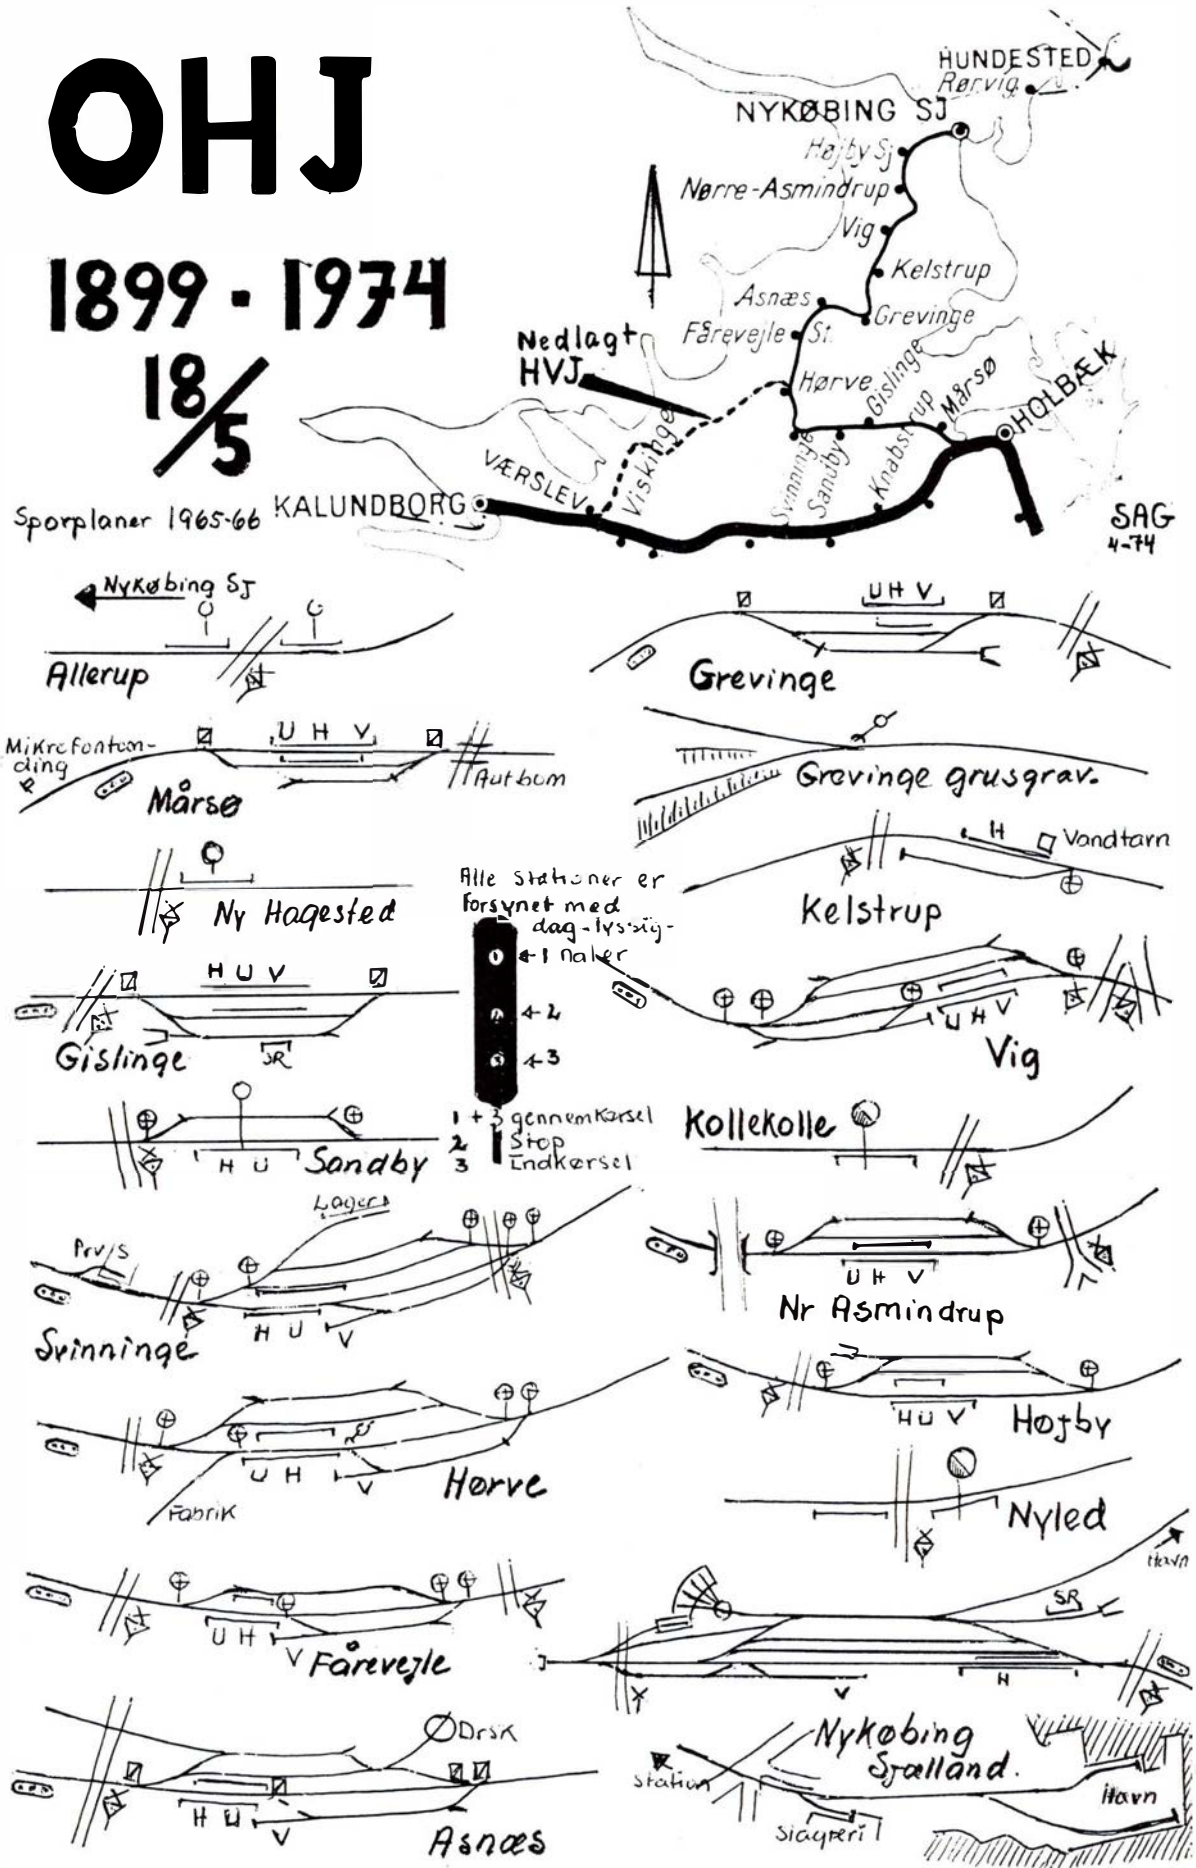 OHJ
1899 - 1974
18/5
Sporplaner 1965-66
HUNDESTED
Rørvig
NYKØBING SJ
Højby Sj
Nørre-Asmindrup
Vig
Kelstrup
Asnæs
Grevinge
Fårevejle St.
Nedlagt
HVJ
Hørve
Gislinge
Mårsø
HOLBÆK
Svinninge
Sandby
Knabstrup
Viskinge
VÆRSLEV
KALUNDBORG
SAG
4-74
Nykøbing SJ
Allerup
Mikrofontæn-
ding
U H V
Autbom
Mårsø
Ny Hagested
H U V
SR
Gislinge
H U
Sandby
Lager
Prv/S
H U V
Svinninge
U H V
Fabrik
Hørve
U H
V
Fårevejle
Drsk
H U
V
Asnæs
Alle stationer er
Forsynet med
dag-lyssig-
naler
1
2
3
1 + 3 gennemkørsel
2 Stop
3 Indkørsel
U H V
Grevinge
Grevinge grusgrav.
H
Vandtårn
Kelstrup
U H V
Vig
Kollekolle
U H V
Nr Asmindrup
H U V
Højby
Nyled
Havn
SR
V
H
Nykøbing
Sjælland.
Station
Slagteri
Havn